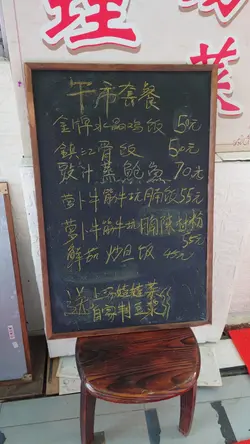 理
菜
午市套餐
金牌水晶鸡饭 50元
鎮江骨饭 50元
豉汁蒸鲍魚 70元
萝卜牛筋牛坑腩饭 55元
萝卜牛筋牛坑腩
55元
鲜茄炒旦饭
送 上汤娃娃菜
自家制豆浆